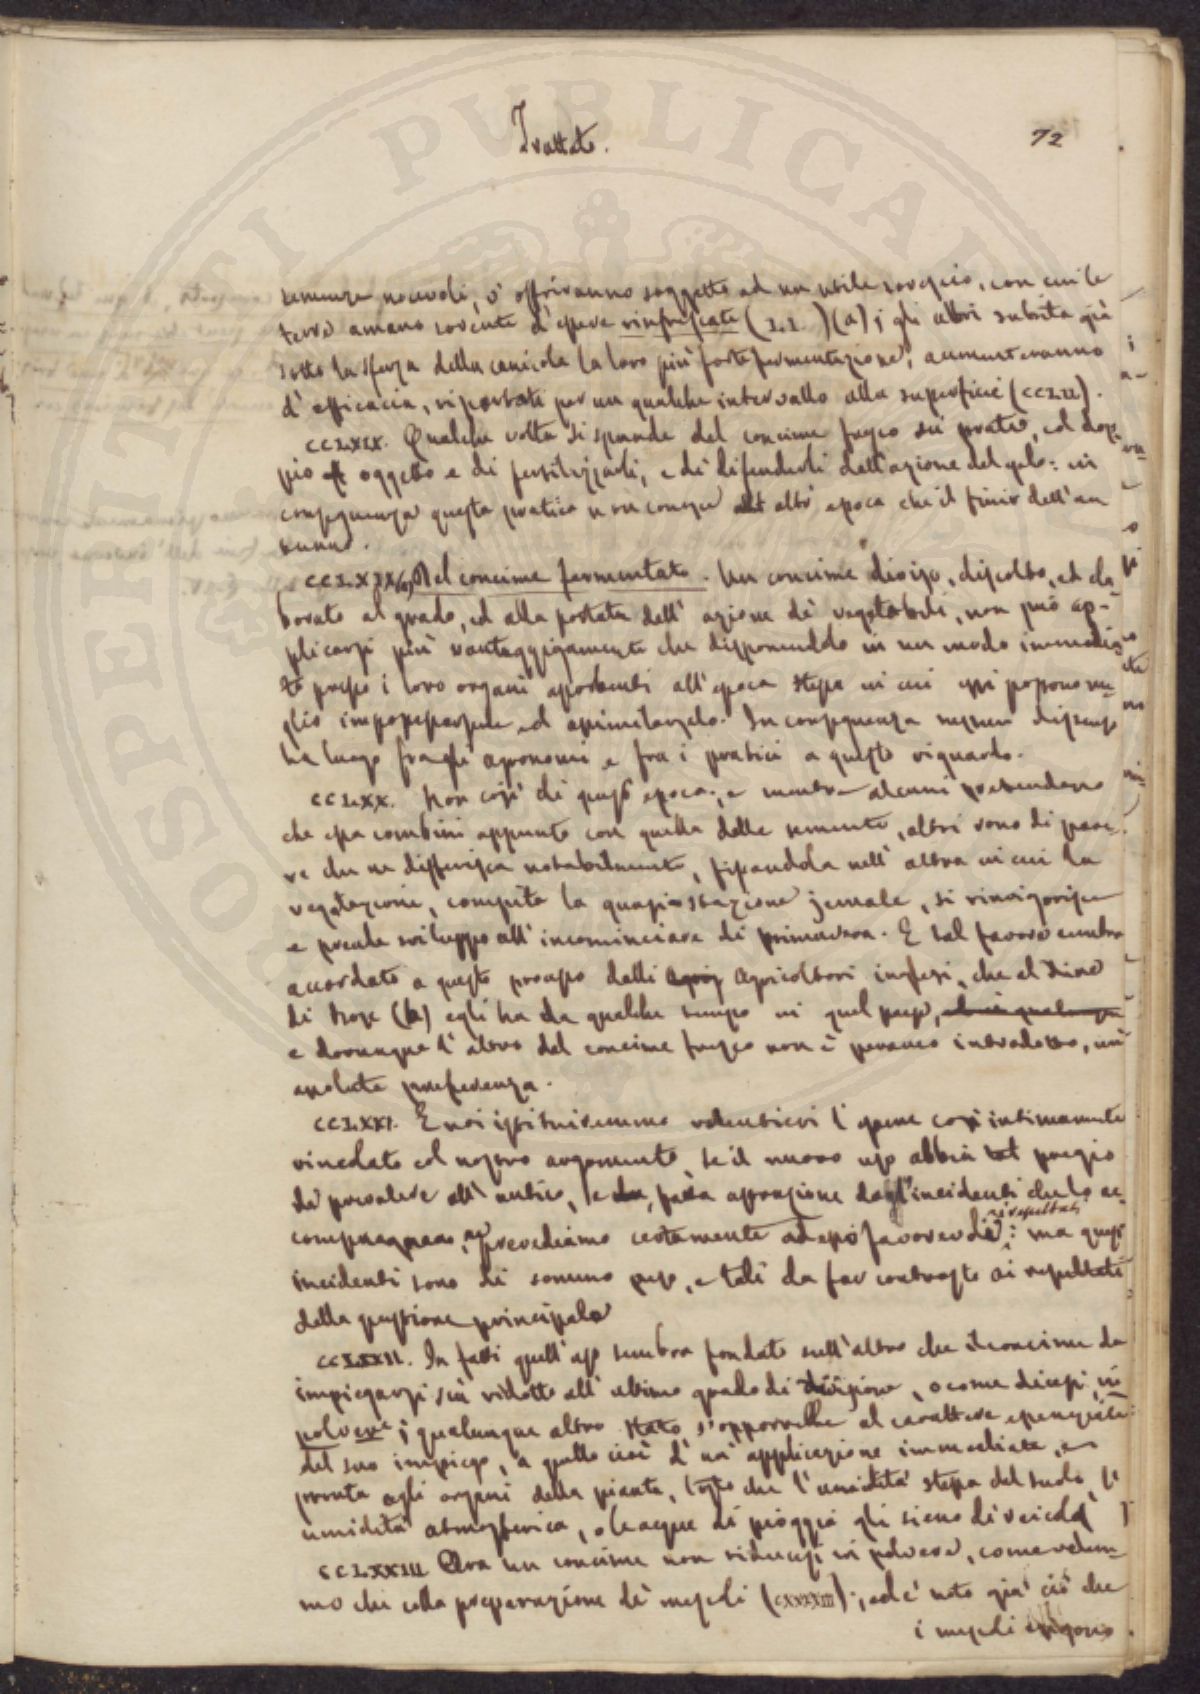 Trattato.
72
semenze nocevoli, s'offriranno soggette ad un utile sovescio, con cui le
terre amano sovente d'essere rinfrescate (I.I. )(a); gli altri subita già
sotto la sferza della canicola la loro più forte fermentazione, aumenteranno
d'efficacia, riportati per un qualche intervallo alla superficie (CCLII).
CCLXIX. Qualche volta si spande del concime fresco sui prati, col dop-
pio oggetto e di fertilizzarli, e di difenderli dall'azione del gelo: in
conseguenza questa pratica non conosce altr'epoca che il finir dell'au
tunno.
CCLXIX(a) Del concime fermentato. Un concime diviso, disciolto, ed ela
borato al grado, ed alla portata dell'azione de' vegetabili, non può ap-
plicarsi più vantaggiosamente che disponendolo in un modo immedia
to presso i loro organi assorbenti all'epoca stessa in cui essi possono me
glio impossessarsene ed assimilarselo. In conseguenza nessun dispareo
ha luogo fra gli agronomi e fra i pratici a questo riguardo.
CCLXX. Non così di quest'epoca; e mentre alcuni pretendono
che essa combini appunto con quella delle semente, altri sono di pare-
re che ne differisca notabilmente, fissandola nell'altra in cui la
vegetazione, compita la quasi stazione jemale, si rinvigorisce
e prende sviluppo all'incominciare di primavera. E tal favore sembra
accordato a questo processo dalli Agricoltori inglesi, che al dire
di (b) egli ha da qualche tempo in quel paese,
e dovunque l'altro del concime fresco non è peranco introdotto, un'
assoluta preferenza.
CCLXXI. E noi istituiremmo volentieri l'esame così intimamente
vincolato col nostro argomento, se il nuovo uso abbia pregio
da prevalere all'antico, e fatta astrazione dagl'incidenti che lo ac-
compagnano, ne prevediamo certamente ad esso favorevoli i resultati: ma quest'
incidenti sono di sommo peso, e tali da far contrasto ai resultati
della questione principale
CCLXXII. In fatti quell'uso sembra fondato sull'altro che il concime da
impiegarsi sia ridotto all'ultimo grado di divisione, o come dicesi, in
polvere; qualunque altro stato s'opporrebbe al carattere essenziale
del suo impiego, a quello cioè d'un'applicazione immediata, e
pronta agli organi della pianta, tosto che l'umidità stessa del suolo, l'
umidità atmosferica, o le acque di pioggia gli sieno di veicolo
CCLXXIII Ora un concime non riducesi in polvere, come vedem-
mo che colla preparazione de' mescoli (CXXXIII); ed è noto già ciò che
i mescoli esigono